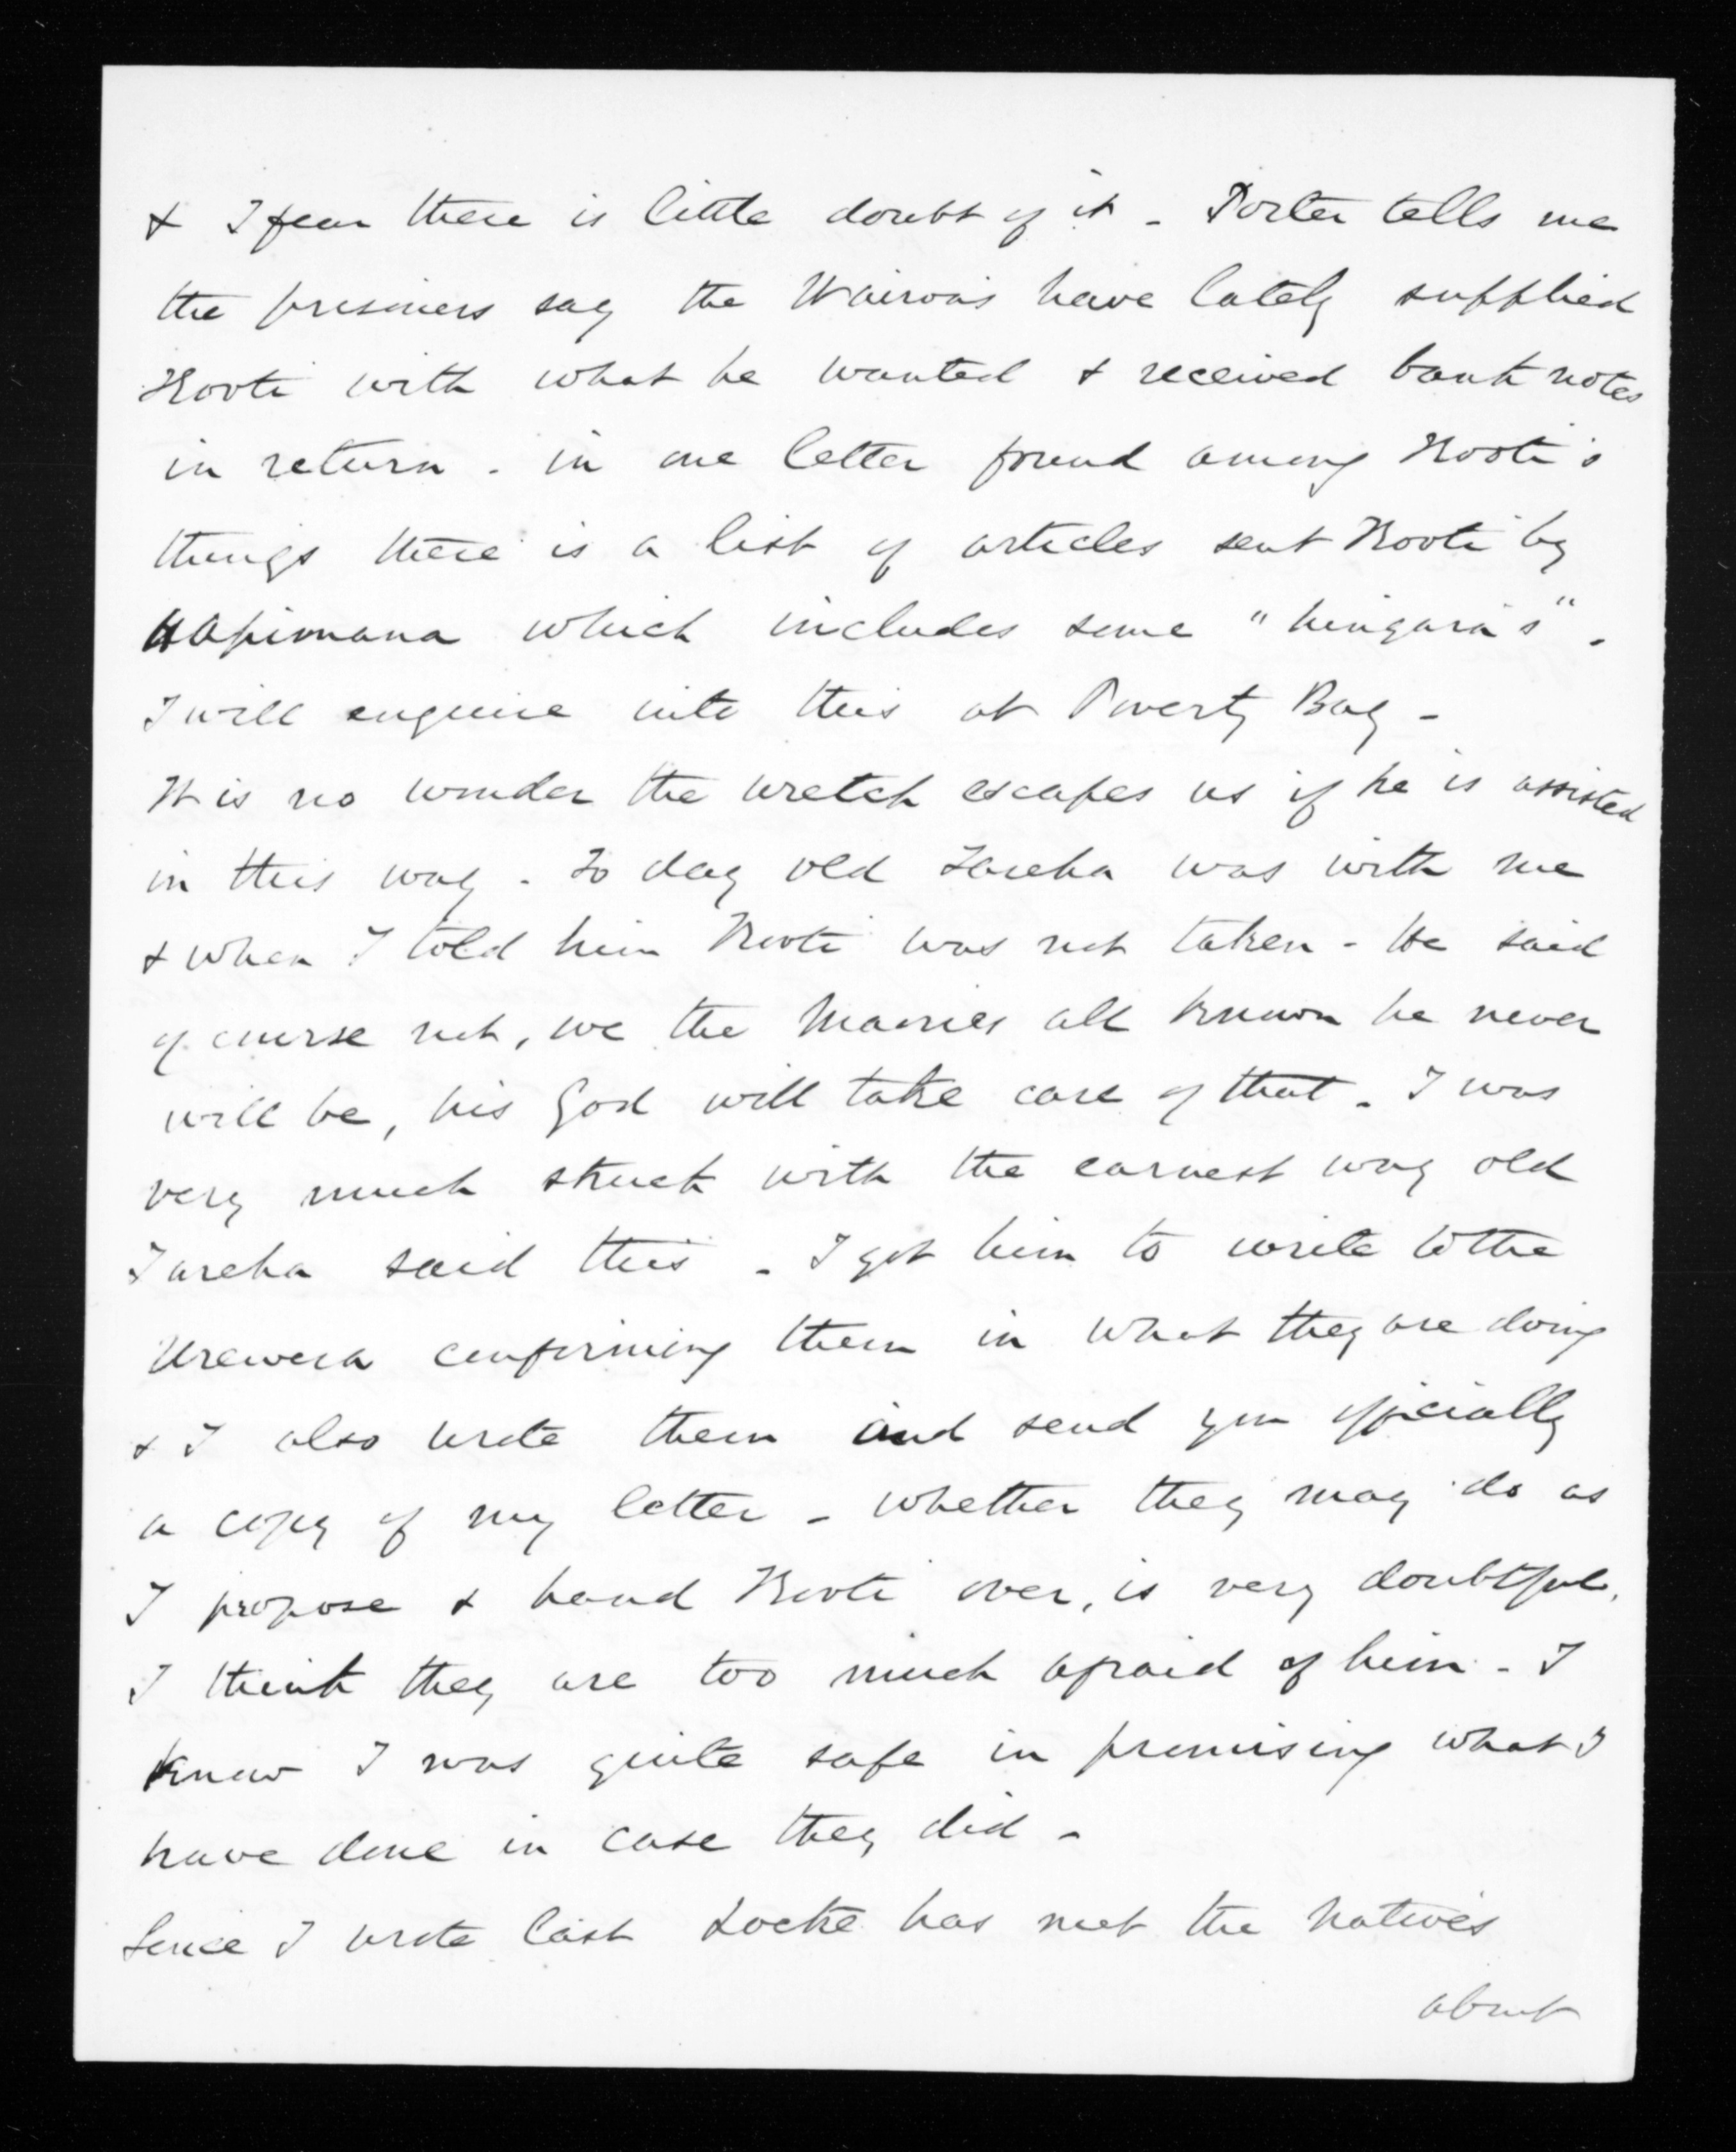 & I fear there is little doubt of it - Porter tells me
the prisoners say the Wairoa's have lately supplied
Kooti with what he wanted & received bank notes
in return - in one letter found among Kooti's
things there is a list of articles sent Kooti by
Hapimana which includes some "hingara's" -
I will enquire into this at Poverty Bay -
It is no wonder the wretch escapes us if he is assisted
in this way - To day old Tareha was with me
& when I told him Kooti was not taken - He said
of course not, we the Maories all know he never
will be, his God will take care of that - I was
very much struck with the earnest way old
Tareha said this - I got him to write to the
Urewera confirming them in what they are doing
& I also wrote them and send you officially
a copy of my letter - whether they may do as
I propose & hand Kooti over, is very doubtful,
I think they are too much afraid of him - I
knew I was quite safe in promising what I
have done in case they did -
Since I wrote last Locke has met the Natives
about